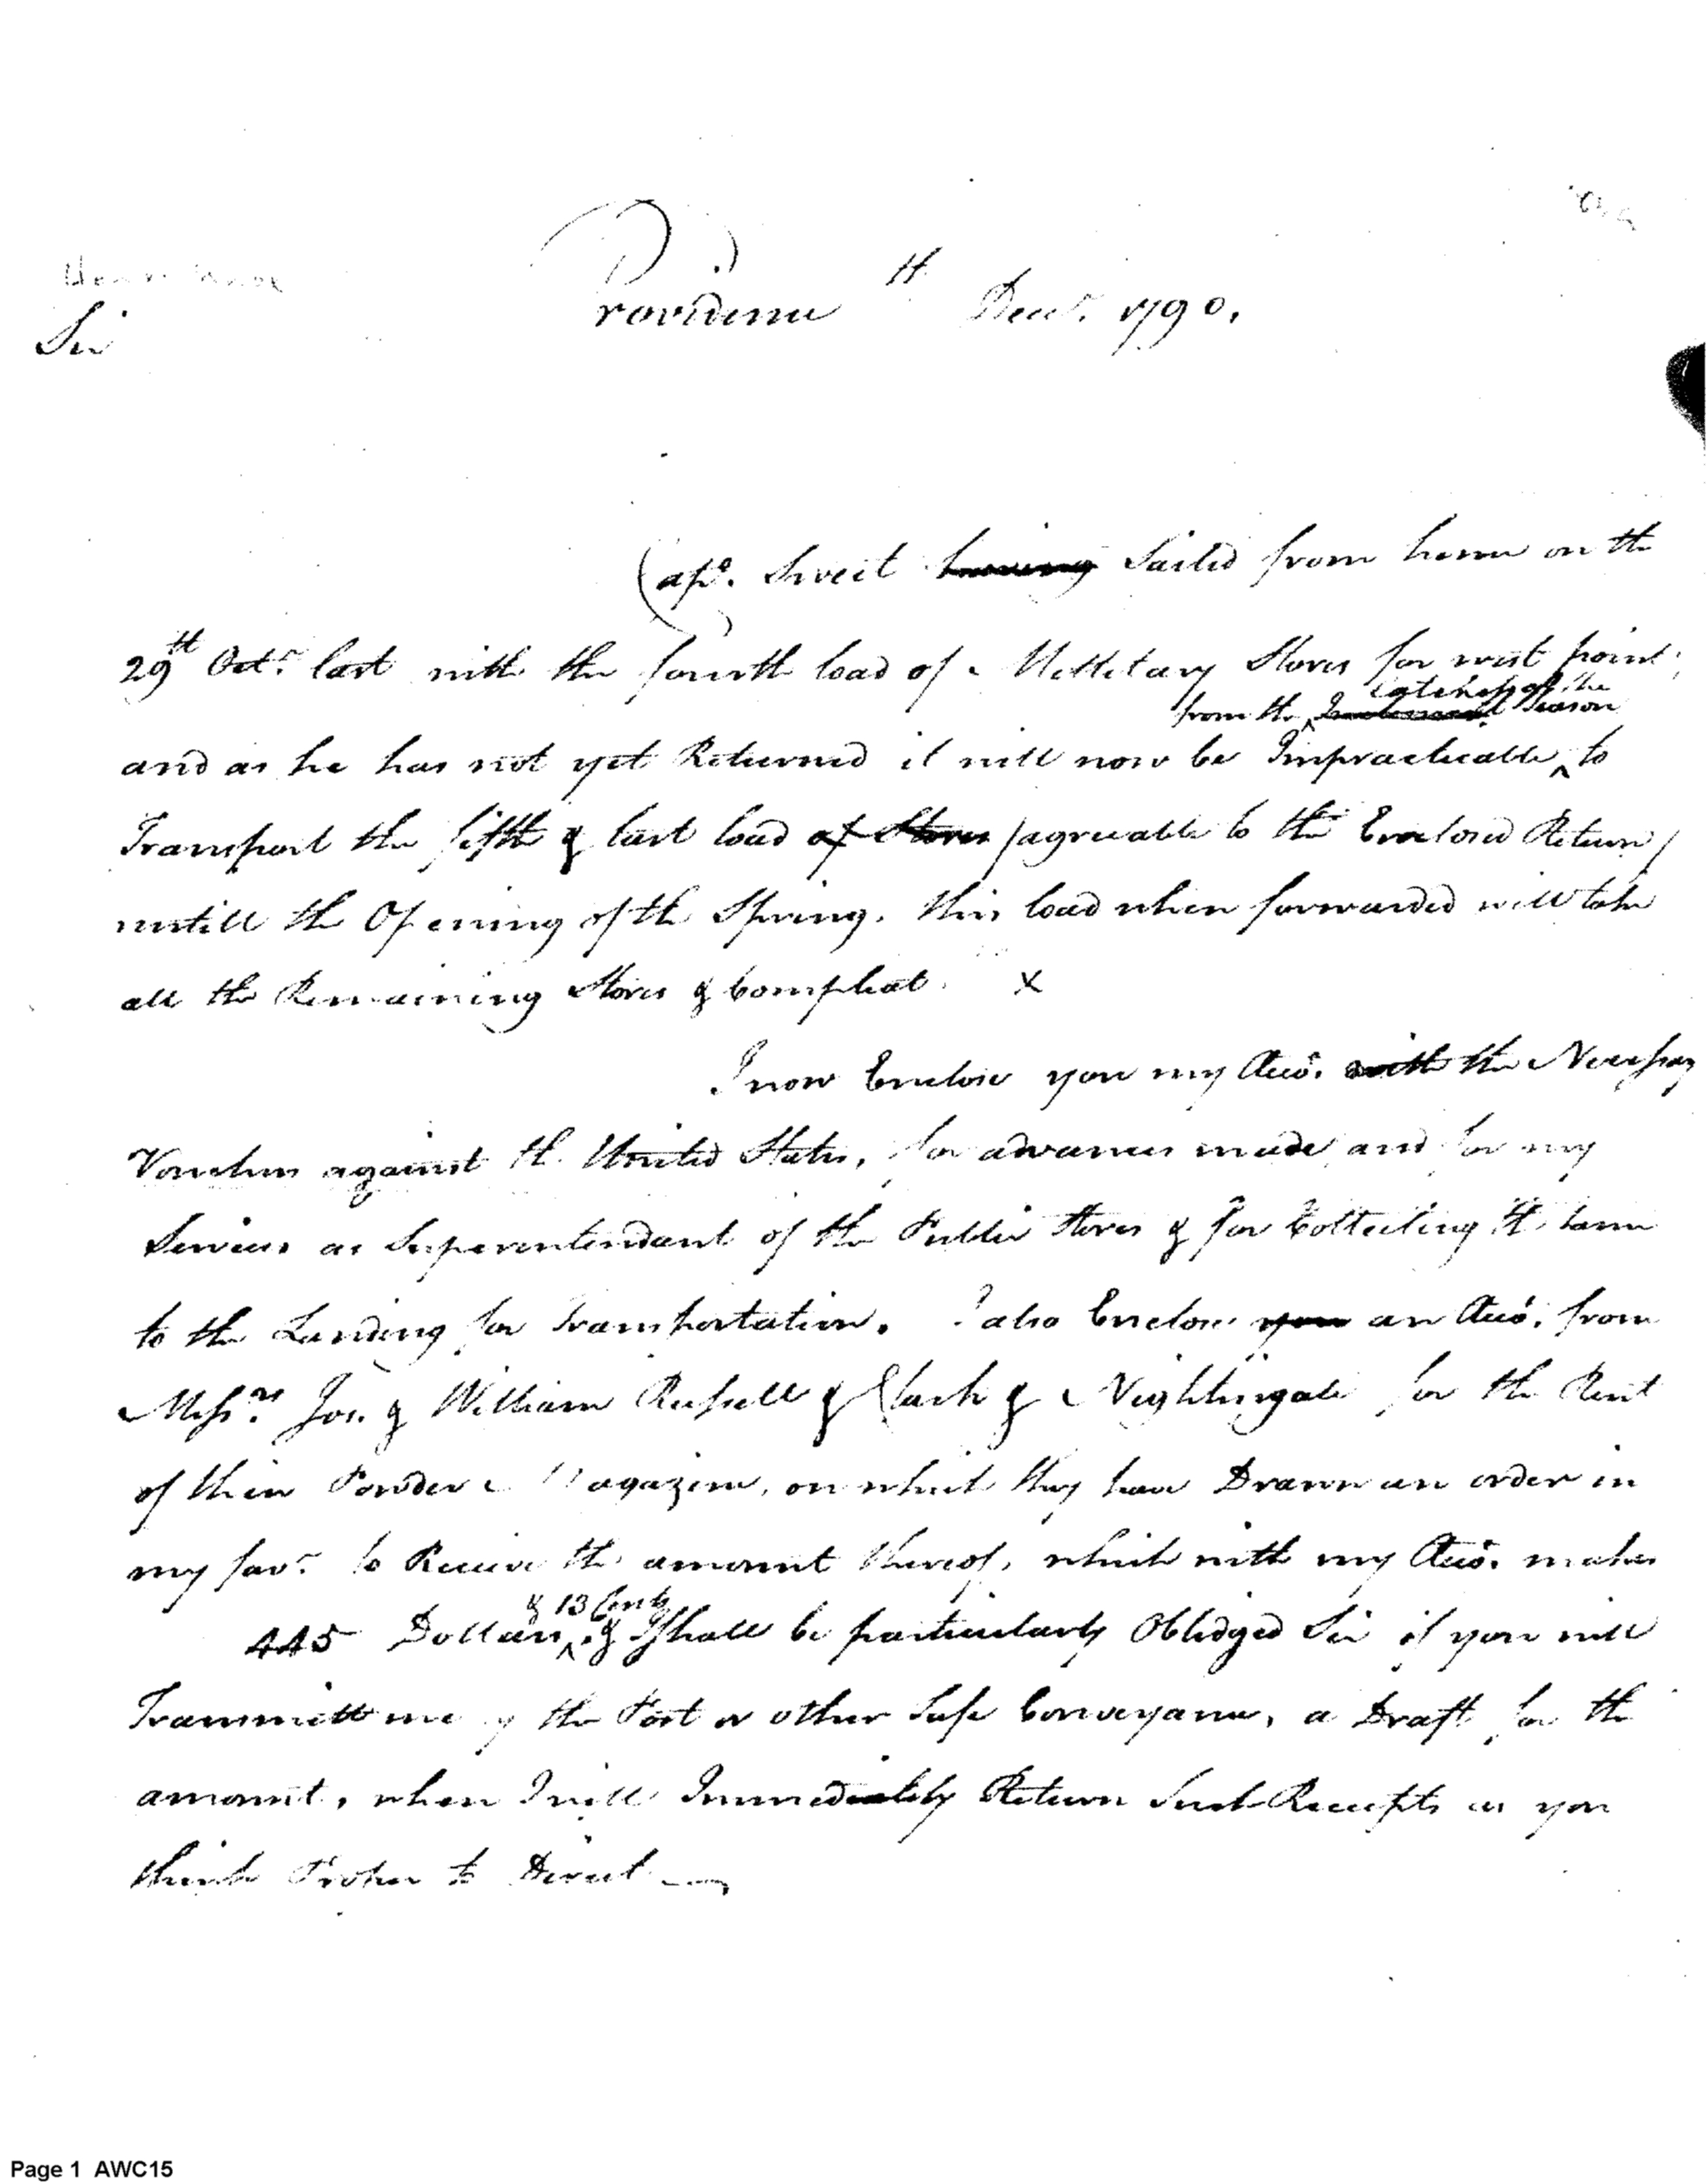 Henry Knox
Providence th Decr. 1790.
Sir
Capt. Sweet having Sailed from hence on the
29th Octr. last with the fourth load of Millitary Stores for west point;
latenefs of the
from the Season
and as he has not yet Returned it will now be Impracticable ^ to
Transport the fifth & last load of Stores /agreeable to the Enclosed Return/
untill the Opening of the Spring. this load when forwarded will take
all the Remaining Stores & Compleat. X
I now Enclose you my Acco. with the Necefsary
Vouchers against the United States, for advances made and for my
Services as Superentendant of the Public Stores & for Collecting the same
to the Landing for Transportation. I also Enclose you an Acco. from
Mefsrs. Jos. & William Rufsell & Clark & Nightingale for the Rent
of their Powder Magazine, on which they have Drawn an order in
my favr. to Receive the amount thereof, which with my Acco. makes
& 13 Cents
445 Dollars ^ . & I Shall be particularly Oblidged Sir if you will
Transmitt me by the Post or other Safe Conveyance, a Draft for the
amount, when I will Immediately Return Such Receipts as you
think Proper to Direct —
Page 1 AWC15